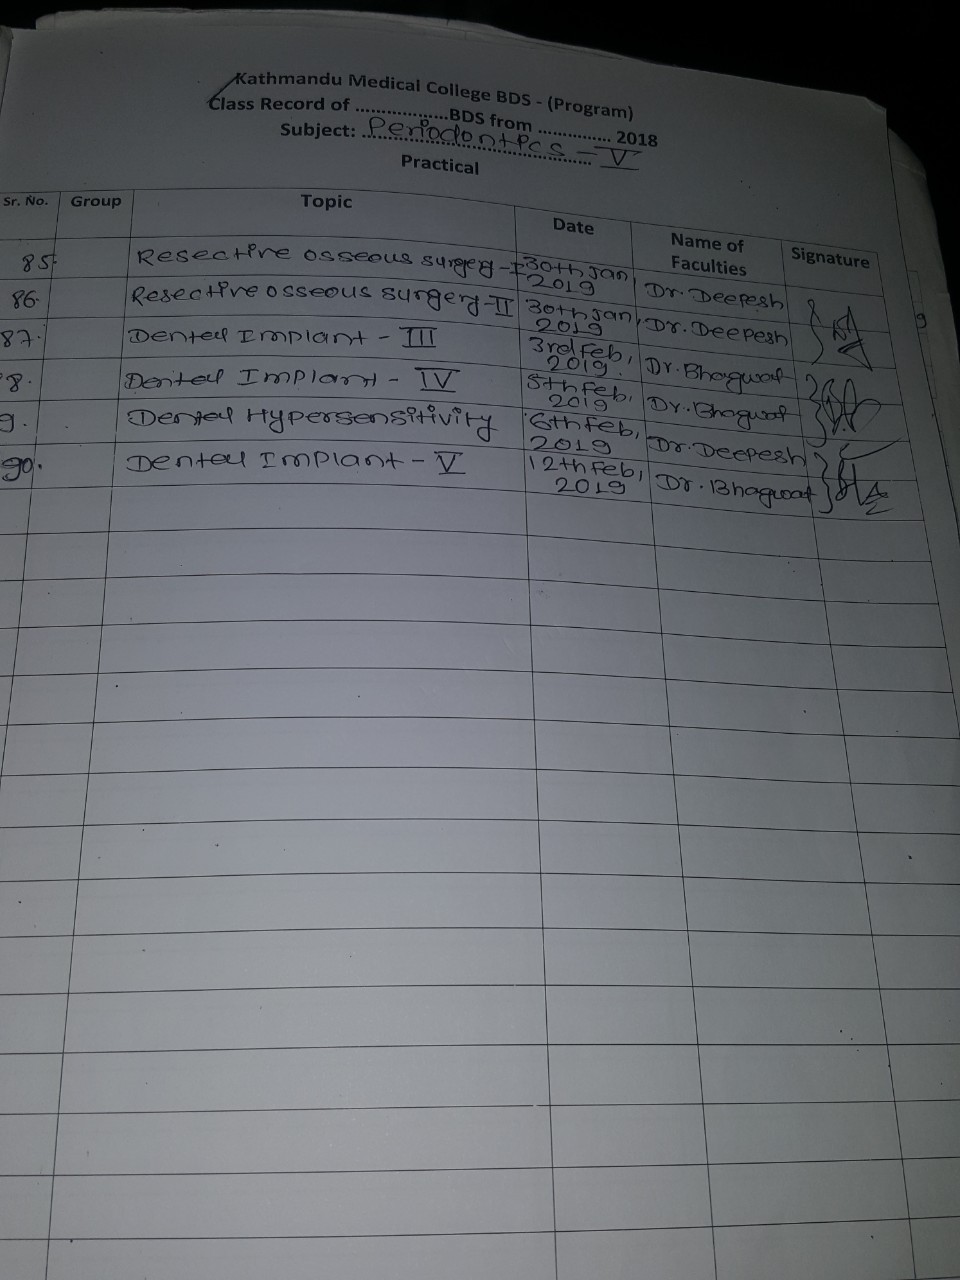 Kathmandu Medical College BDS - (Program)
Class Record of ..................BDS from .............. 2018
Subject: Periodontics - V
Practical
Sr. No. Group Topic Date Name of Faculties Signature
85. Resective osseous surgery - I 30th Jan, 2019 Dr. Deepesh
86. Resective osseous surgery - II 30th Jan, 2019 Dr. Deepesh
87. Dental Implant - III 3rd Feb, 2019. Dr. Bhagwat
8. Dental Implant - IV 5th Feb, 2019 Dr. Bhagwat
9. Dental Hypersensitivity 6th Feb, 2019 Dr. Deepesh
90. Dental Implant - V 12th Feb, 2019 Dr. Bhagwat